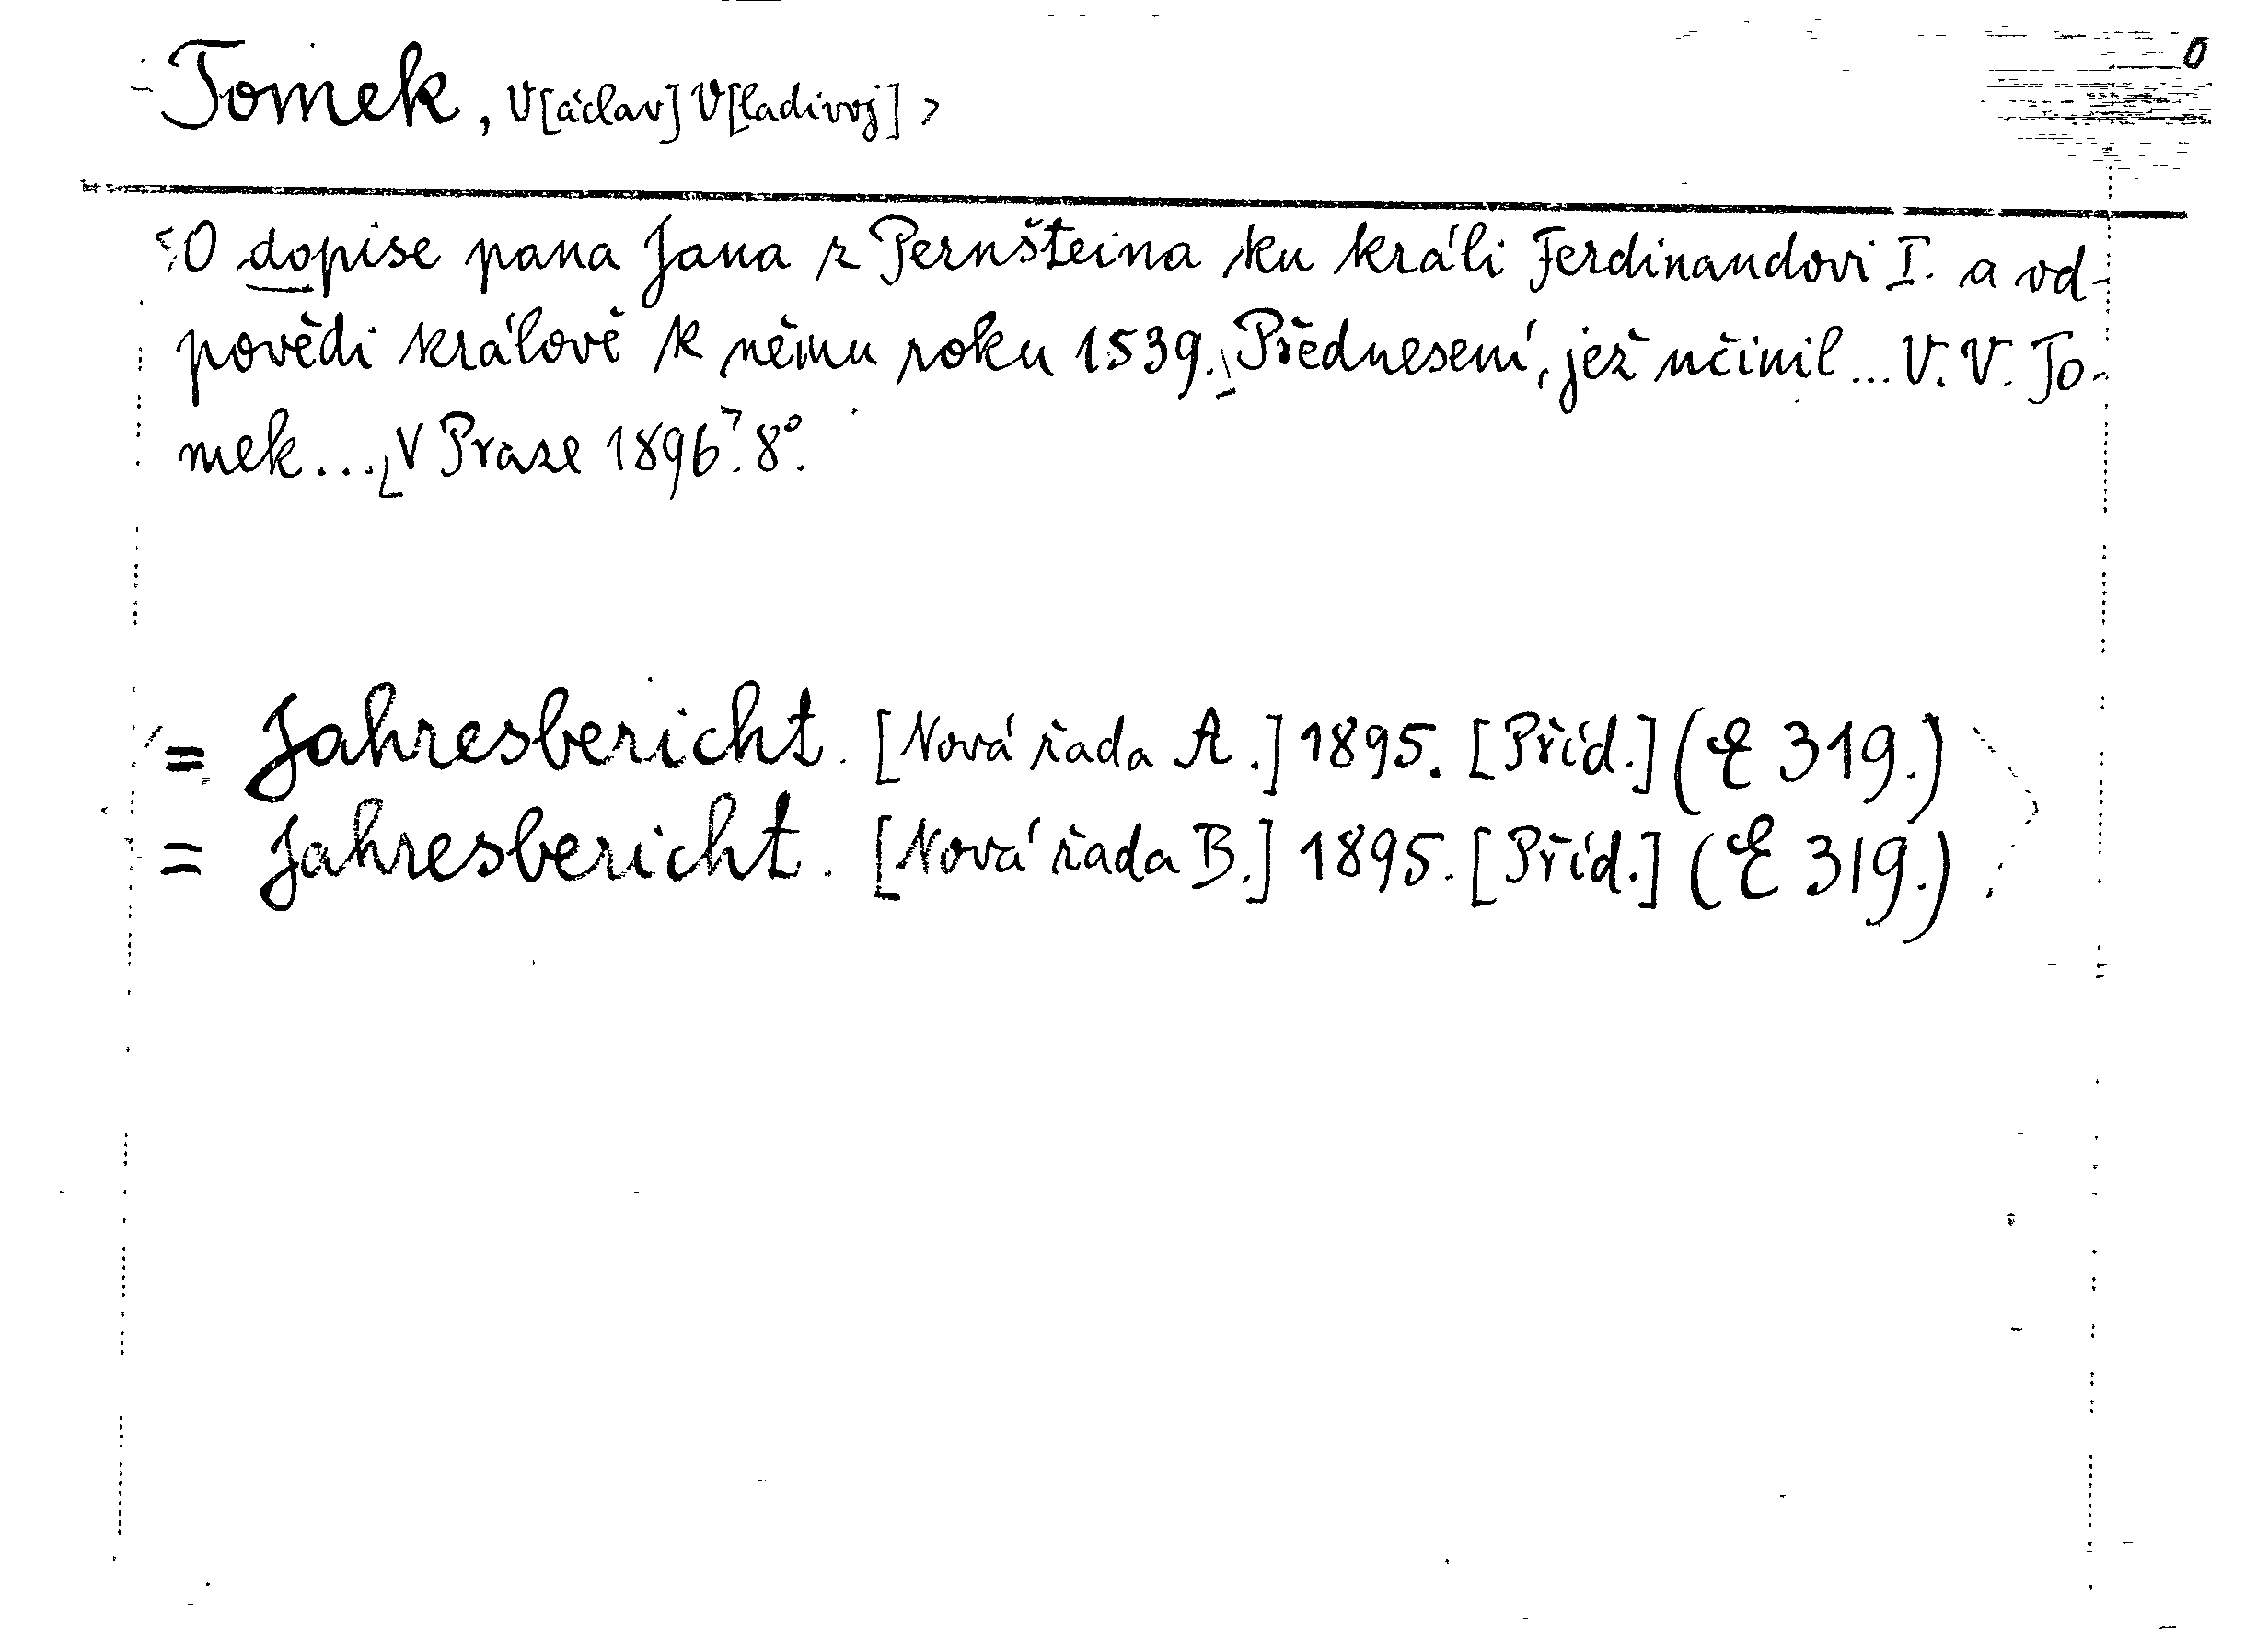 Tomek, V[áclav] V[ladivoj]
O dopise pana Jana z Pernšteina ku králi Ferdinandovi I. a od-
povědi králově k němu roku 1539. Přednesení, jež učinil... V. V. To-
mek... V Praze 1896. 8°.
= Jahresbericht. [Nová řada A.] 1895. [Příd.] (E 319.)
= Jahresbericht. [Nová řada B.] 1895. [Příd.] (E 319.)